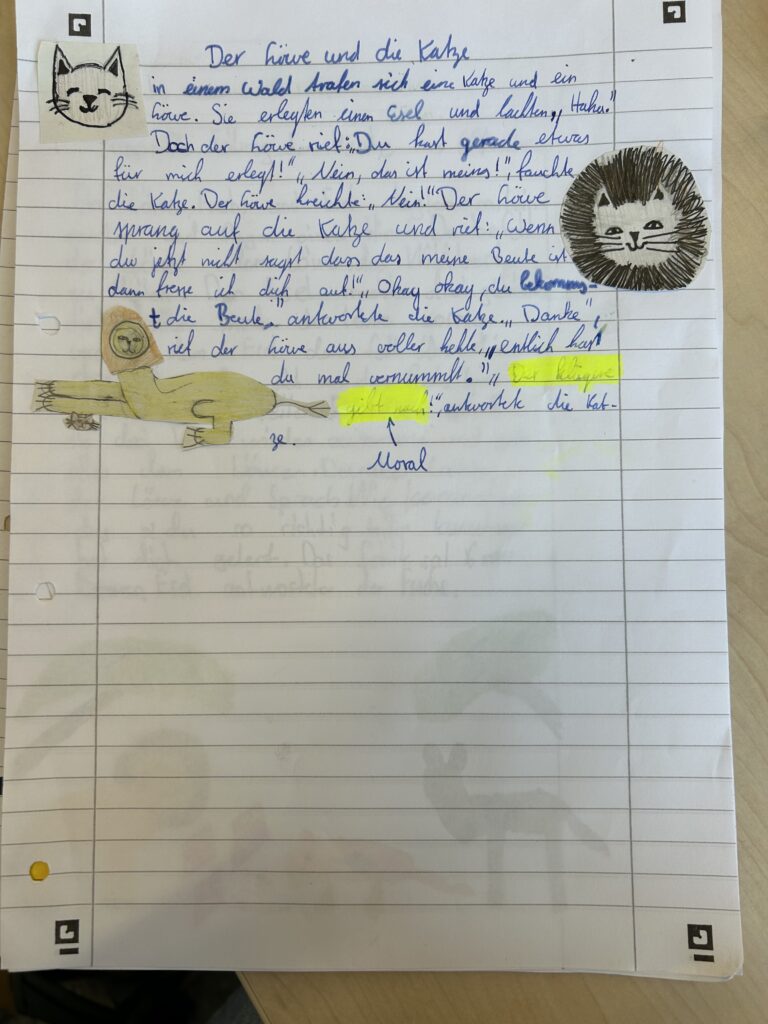 Der Löwe und die Katze
in einem Wald trafen sich eine Katze und ein
Löwe. Sie erlegten einen Esel und lachten „Haha."
Doch der Löwe rief: „Du hast gerade etwas
für mich erlegt!" „Nein, das ist meins!", fauchte
die Katze. Der Löwe kreichte: „Nein!" Der Löwe
sprang auf die Katze und rief: „Wenn
du jetzt nicht sagst dass das meine Beute ist
dann fresse ich dich auf!" „Okay okay, du bekomms-
t die Beute." antwortete die Katze. „Danke",
rief der Löwe aus voller kehle, „entlich hast
du mal vernummft." „Der klügere
gibt nach!", antwortete die Kat-
ze.
Moral